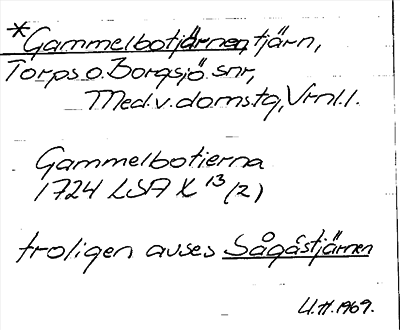 *Gammelbotjärnen, tjärn,
Torps o. Borgsjö snr,
Med. v. domstg, Vrnl. l.
Gammelbotierna
1724 LSA X 13/(2)
troligen avses Sågåstjärnen
U.H. 1969.